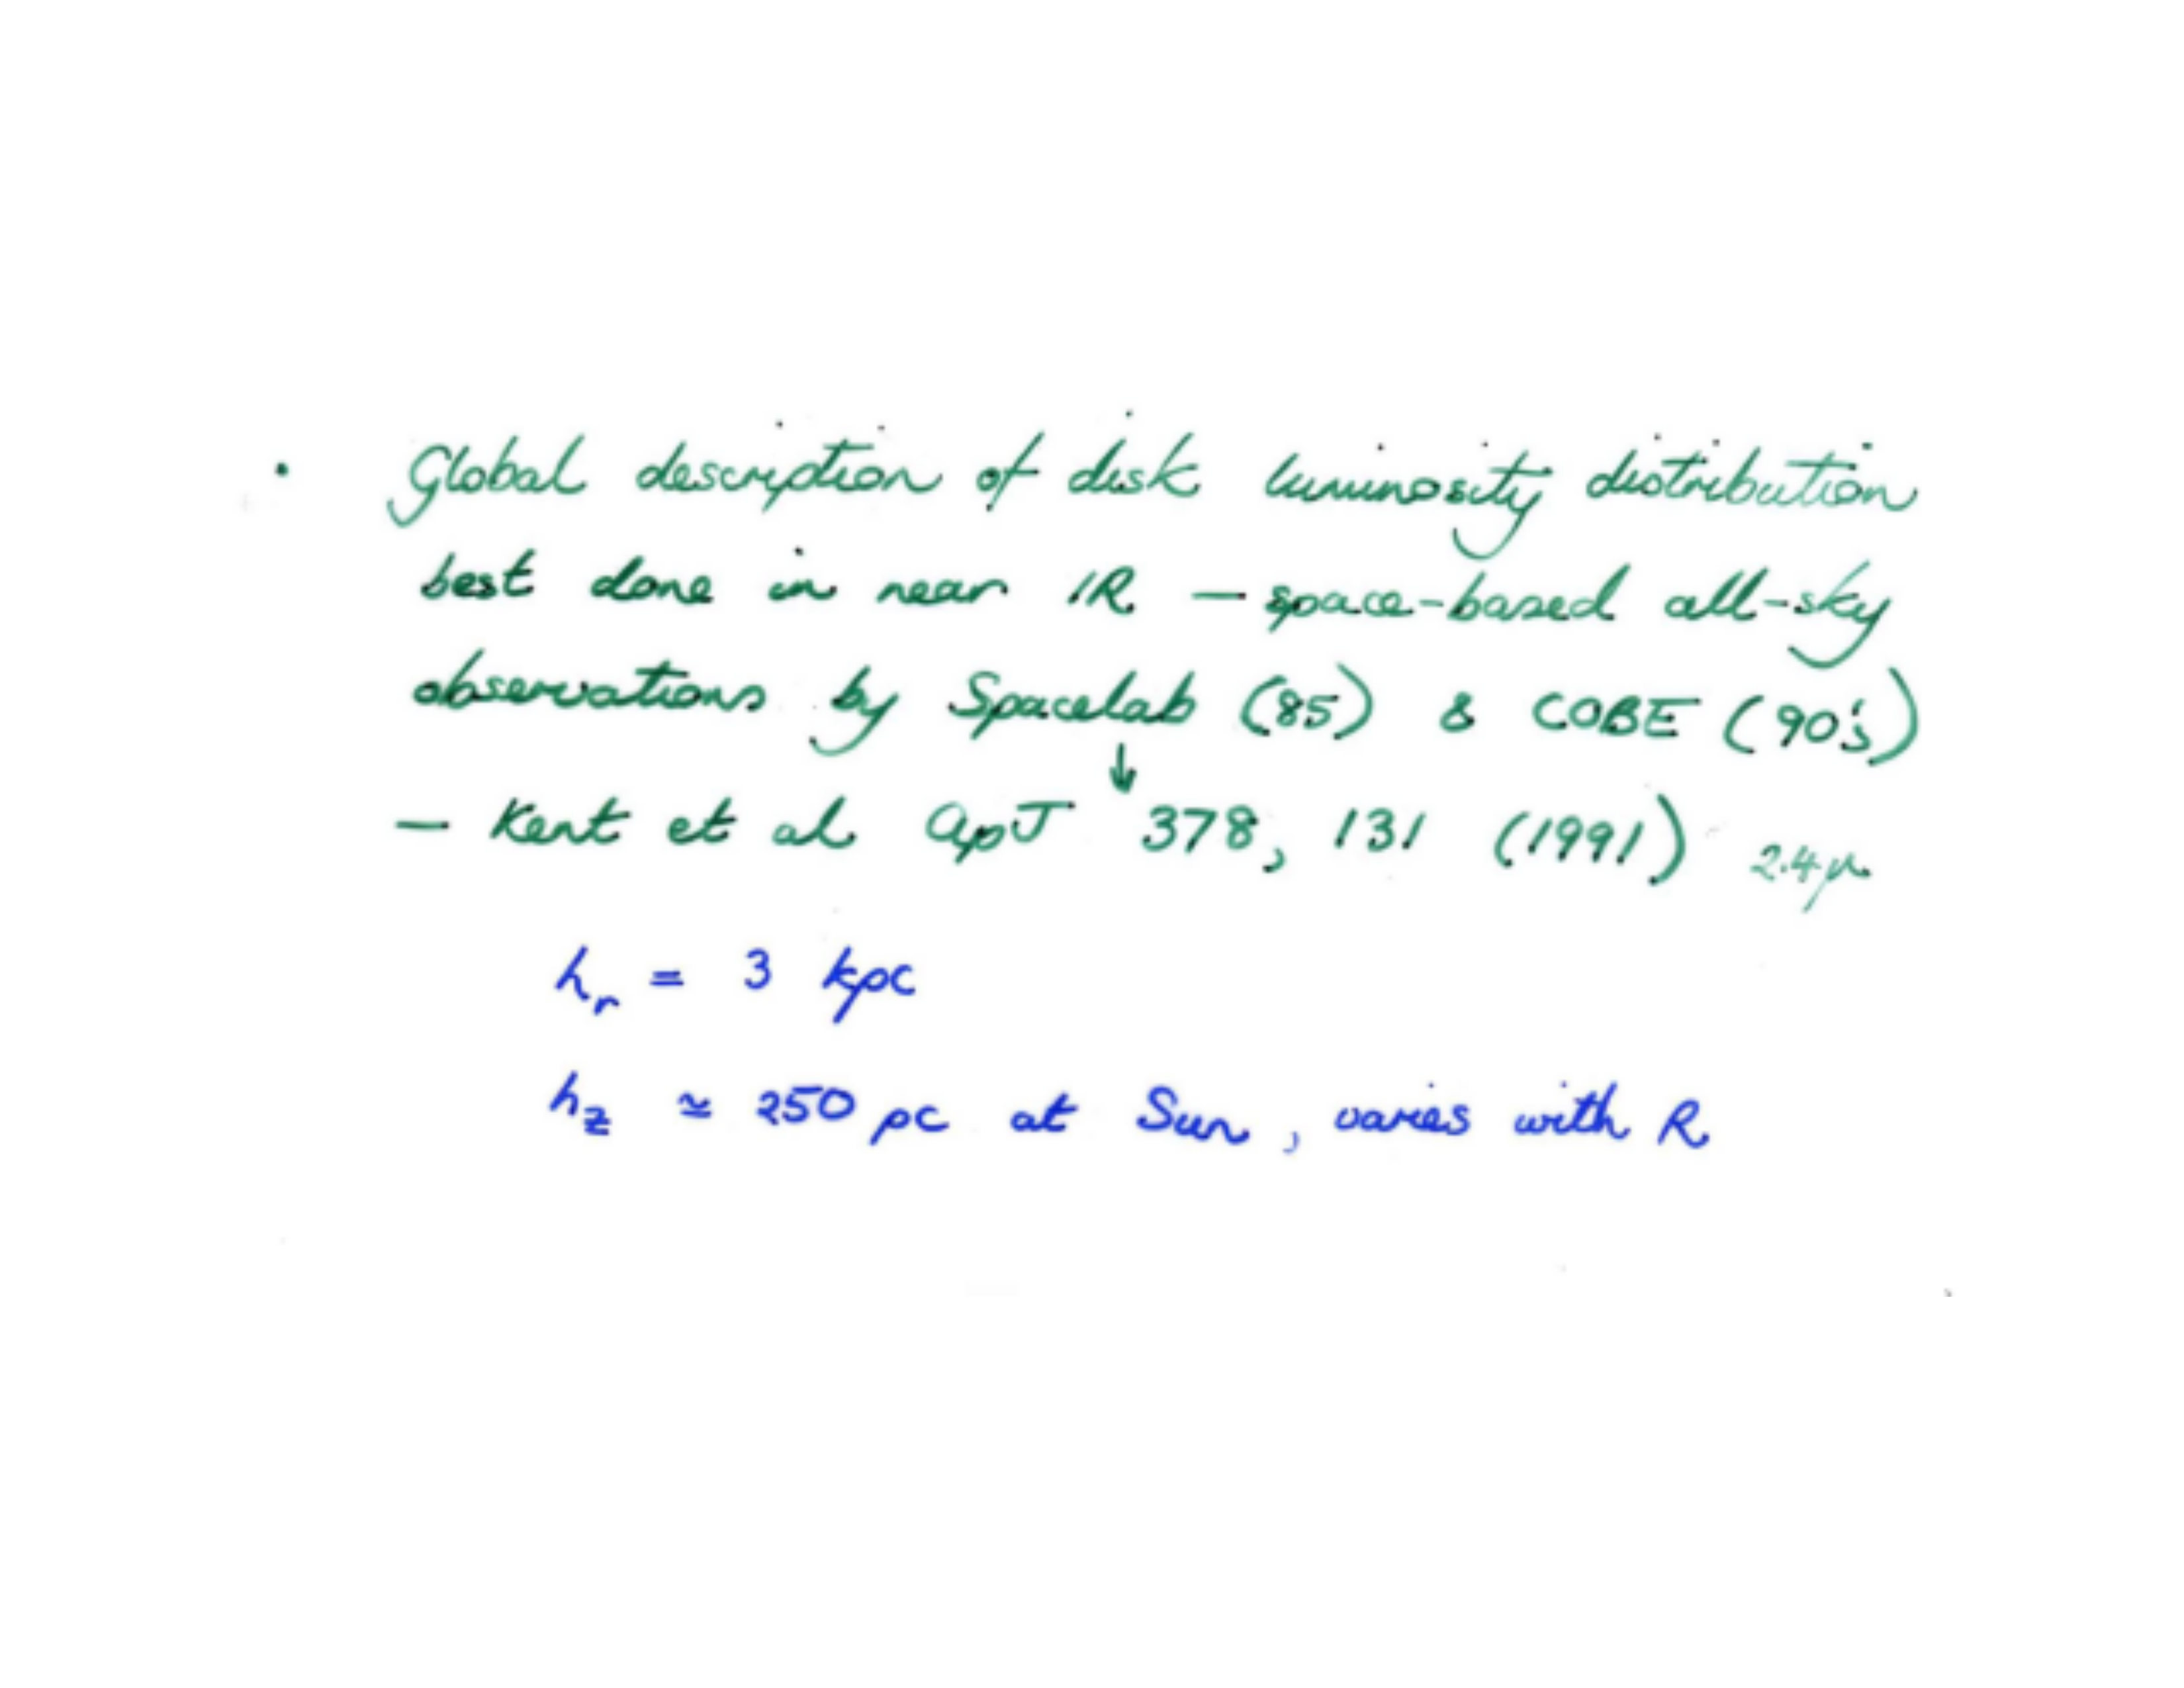 · Global description of disk luminosity distribution
best done in near IR — space-based all-sky
observations by Spacelab (85) & COBE (90's)
↓
— Kent et al ApJ 378, 131 (1991) 2.4μ
h_r = 3 kpc
h_z ≃ 250 pc at Sun, varies with R